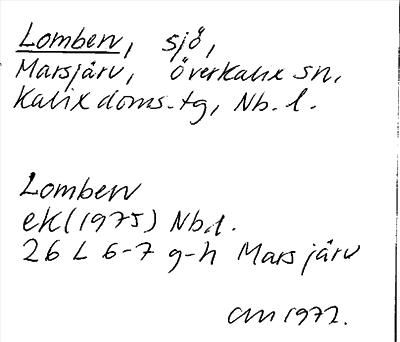 Lomben, sjö,
Marsjärv, Överkalix sn,
Kalix doms.tg, Nb.l.
Lomben
ek(1975) Nb.l.
26 L 6-7 g-h Marsjärv
1977.